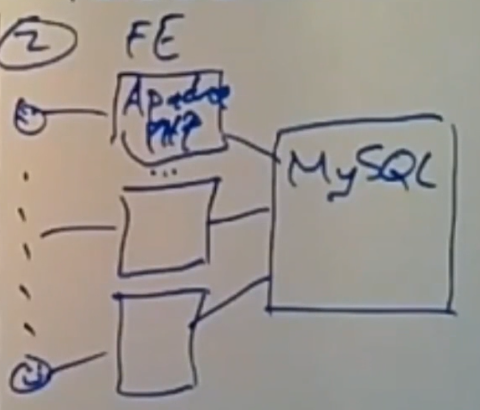 2 FE
Apache
PHP
...
MySQL